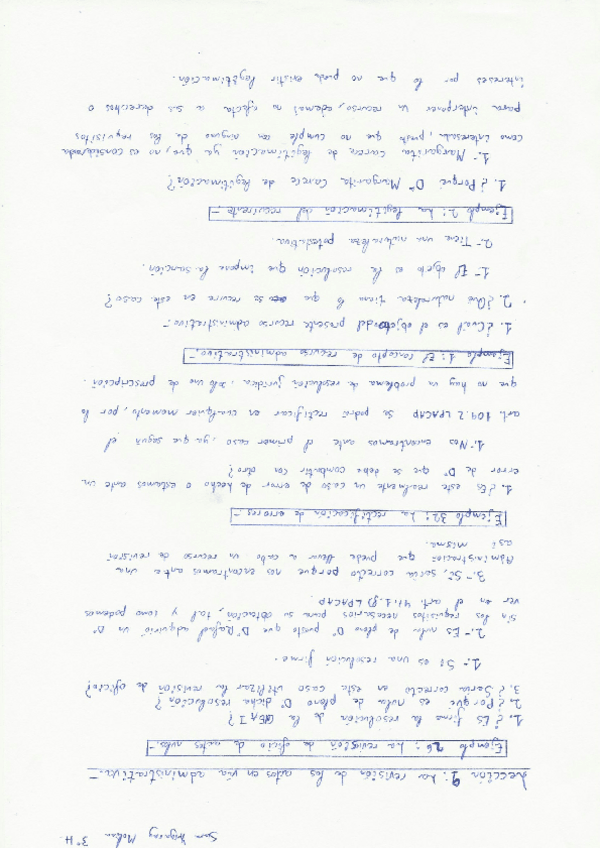 3º H
Lección 9: La revisión de los actos en vía administrativa.-
Ejemplo 26: La revisión de oficio de actos nulos.-
1. ¿Es firme la resolución de la
2. ¿Porqué es nula de pleno Dº dicha resolución?
3. ¿Sería correcto en este caso utilizar la revisión de oficio?
1.- Sí es una resolución firme.
2.- Es nula de pleno Dº puesto que Dº Rafael adquirió un Dº
sin los requisitos necesarios para su obtención, tal y como podemos
ver en el art. 47.1.f) LPACAP
3.- Sí, sería correcto porque nos encontramos ante una
Administración que puede llevar a cabo un recurso de revisión
así misma.
Ejemplo 32: La rectificación de errores.-
1. ¿Es este realmente un caso de error de hecho o estamos ante un
error de Dº que se debe combatir con otro?
1.- Nos encontramos ante el primer caso, ya que según el
art. 109.2 LPACAP se podrá rectificar en cualquier momento, por lo
que no hay un problema de resolución jurídica, sólo uno de prescripción.
Ejemplo 1: El concepto de recurso administrativo.-
1. ¿Cuál es el objeto del presente recurso administrativo.-
2. ¿Qué naturaleza tiene lo que se recurre en este caso?
1.- El objeto es la resolución que impone la sanción.
2.- Tiene una naturaleza potestativa.
Ejemplo 2: La legitimación del recurrente.-
1. ¿Porqué Dª Margarita carece de legitimación?
1.- Margarita carece de legitimación ya que, no es considerada
como interesada, puesto que no cumple con ninguno de los requisitos
para interponer un recurso, además no afecta a sus derechos o
intereses por lo que no puede existir legitimación.